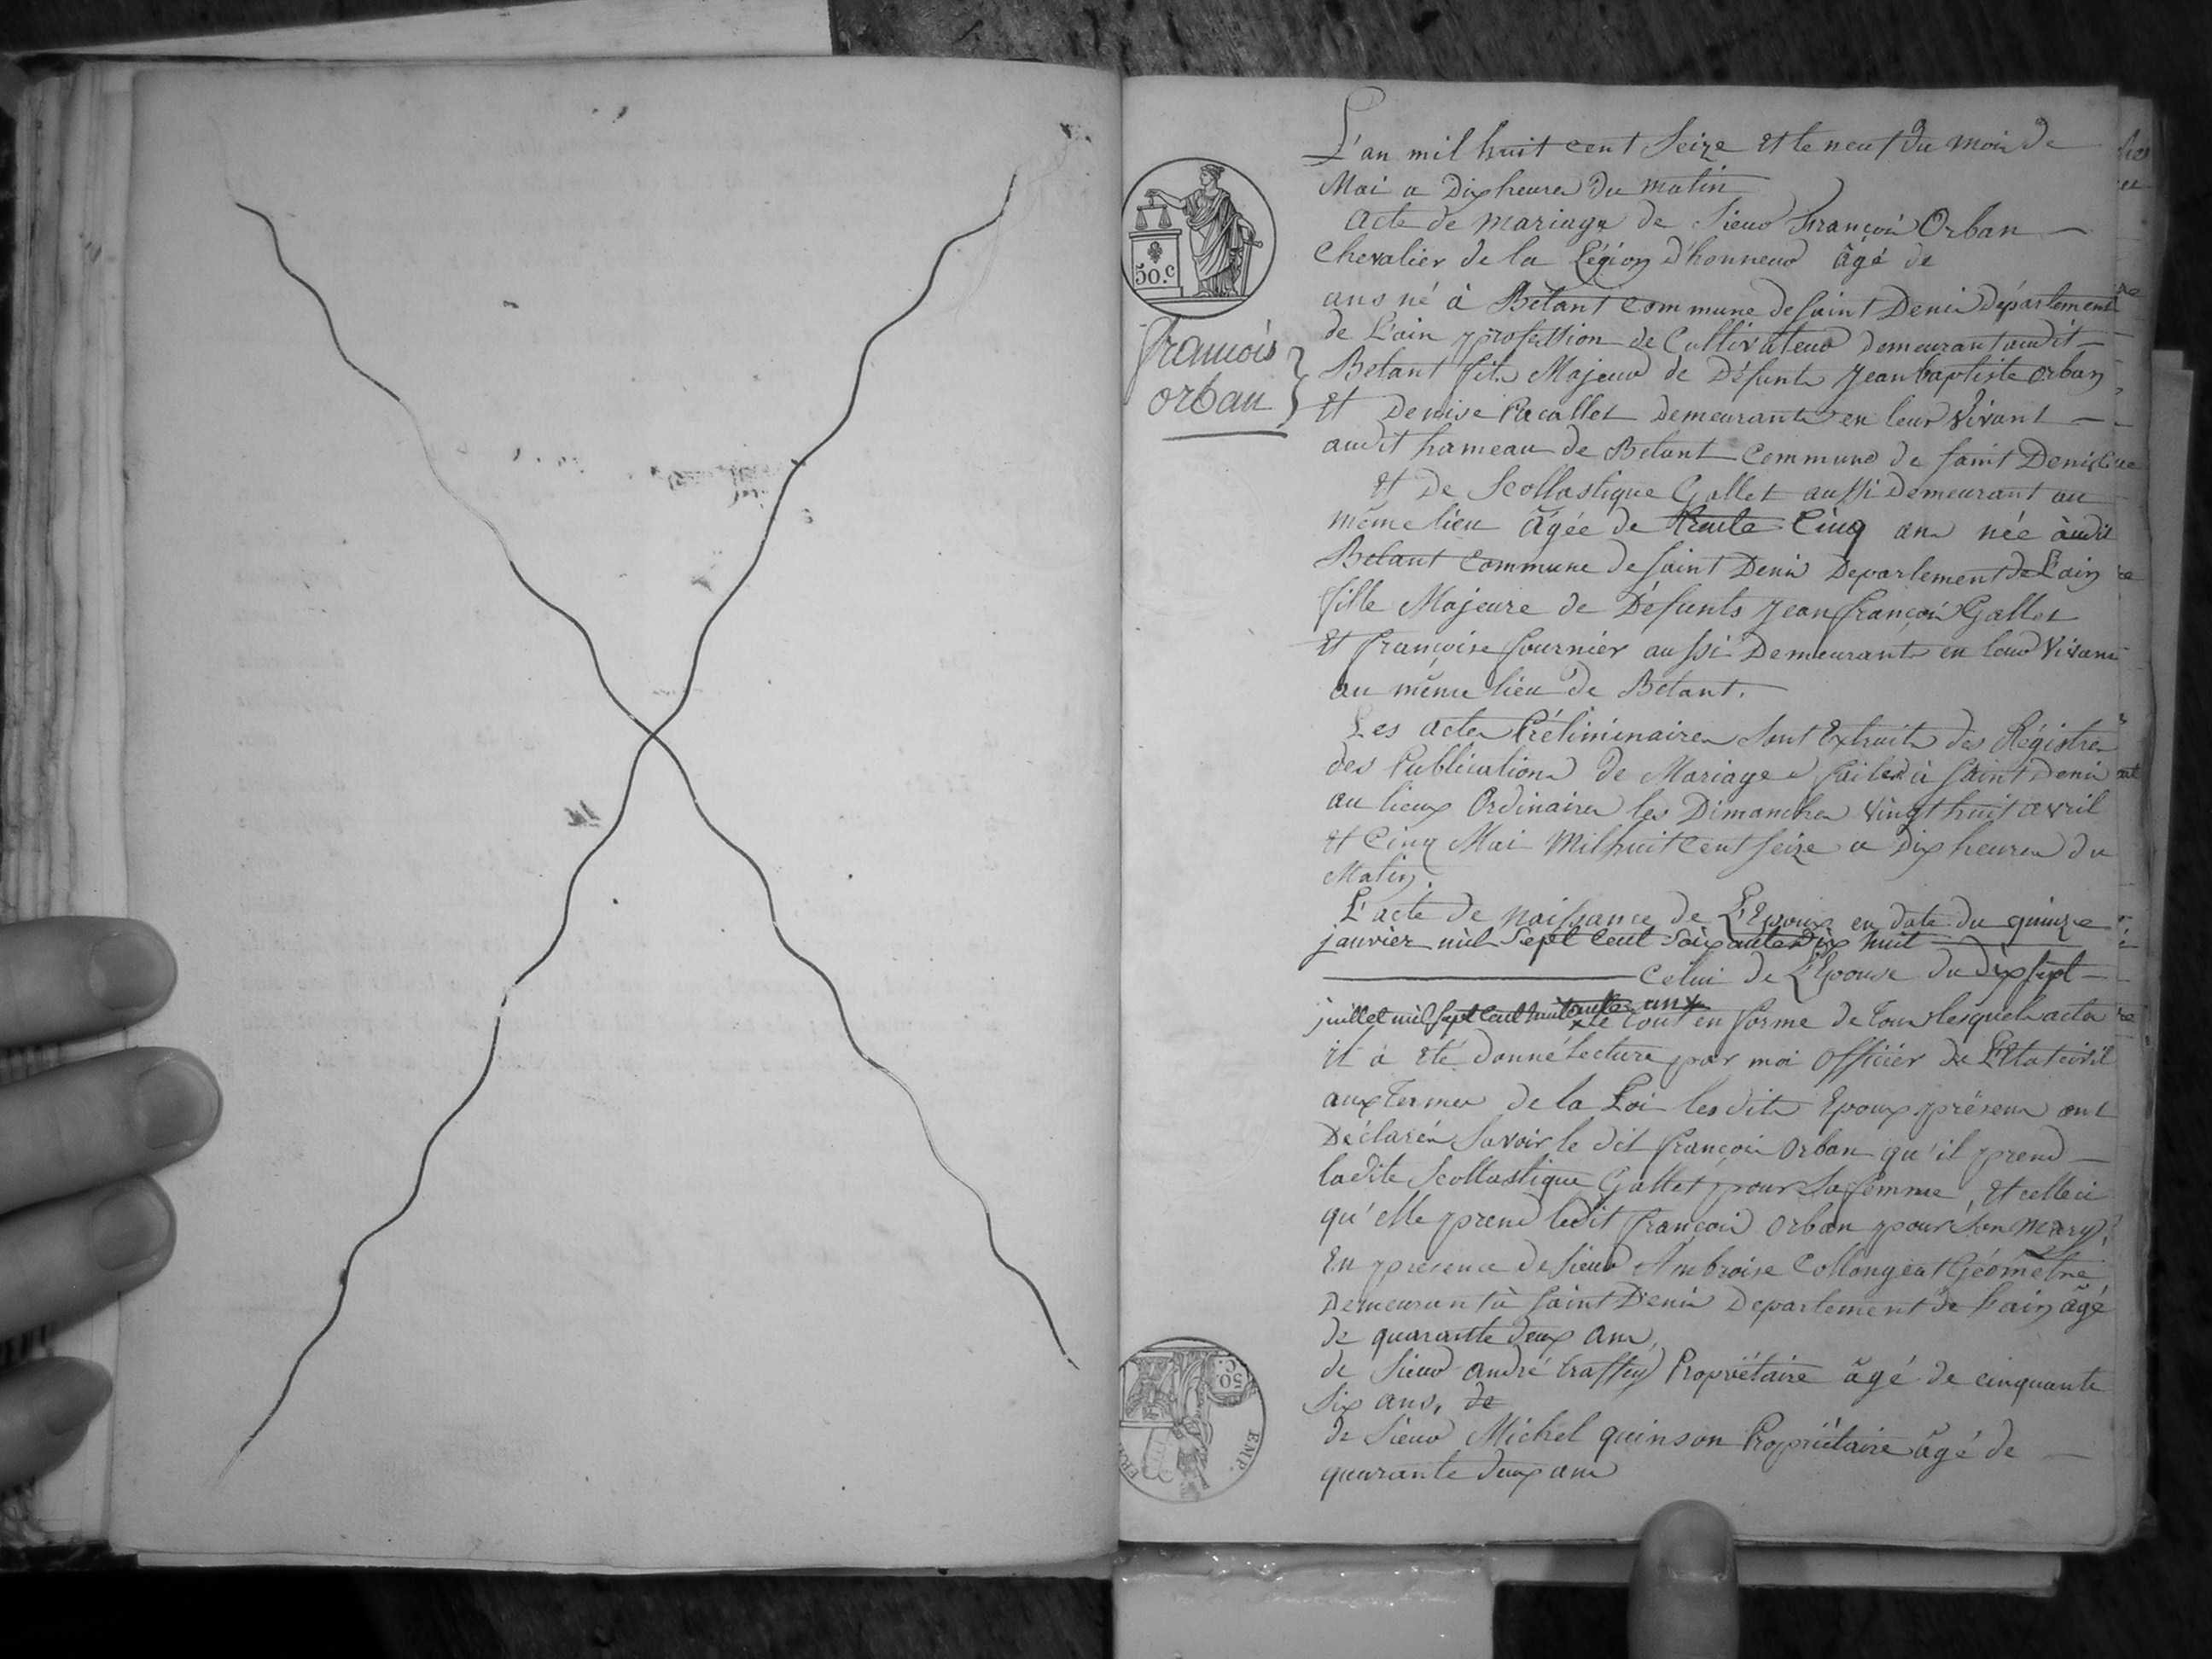 L'an mil huit cent Seize Et le neuf du mois de
Mai a Dix heures du matin
acte de mariage de Sieur François Orban
Chevalier de la Légion d'honneur âgé de
ans né à Bétant commune de Saint Denis département
de L'ain profession de Cultivateur demeurant audit
Betant fils Majeur de Défunts Jean baptiste orban
Et Denise Pacallet Demeurants en leur Vivant
audit hameau de Betant Commune de Saint Denis
50.c
françois
orban
Et De Scollastique Gallet aussi Demeurant au
même lieu âgée de trente Cinq ans née audit
Betant Commune de Saint Denis Departement de L'ain
fille Majeure de Défunts Jean françois Gallet
Et françoise fournier aussi Demeurants en leur Vivant
au même lieu de Betant.
Les actes Préliminaires sont Extraits des Régistres
des Publications de Mariages faites à Saint Denis
au lieux Ordinaires les Dimanches Vingt huit avril
et Cinq Mai Mil huit Cent Seize a Dix heures du
Matin.
L'acte de Naissance de L'Epoux en date du quinze
janvier mil Sept Cent Soixante Dix huit
Celui de L'Epouse du dix Sept
juillet mil Sept Cent
Le tout en forme de tous lesquels actes
il a été donné lecture par moi Officier de L'Etat civil
aux Termes de la Loi les dits Epoux présens ont
Déclarés Savoir le dit françois Orban qu'il prend
ladite Scollastique Gallet pour Sa femme, Et celle ci
qu'elle prend ledit françois Orban pour Son Mary,
En présence de Sieur Ambroise Collongeat Géomètre
Demeurant à Saint Denis Departement de L'ain âgé
de quarante deux ans,
de Sieur andré Propriétaire âgé de cinquante
Six ans, de
de Sieur Michel quinson Propriétaire âgé de
quarante deux ans
50.C.
EMP.